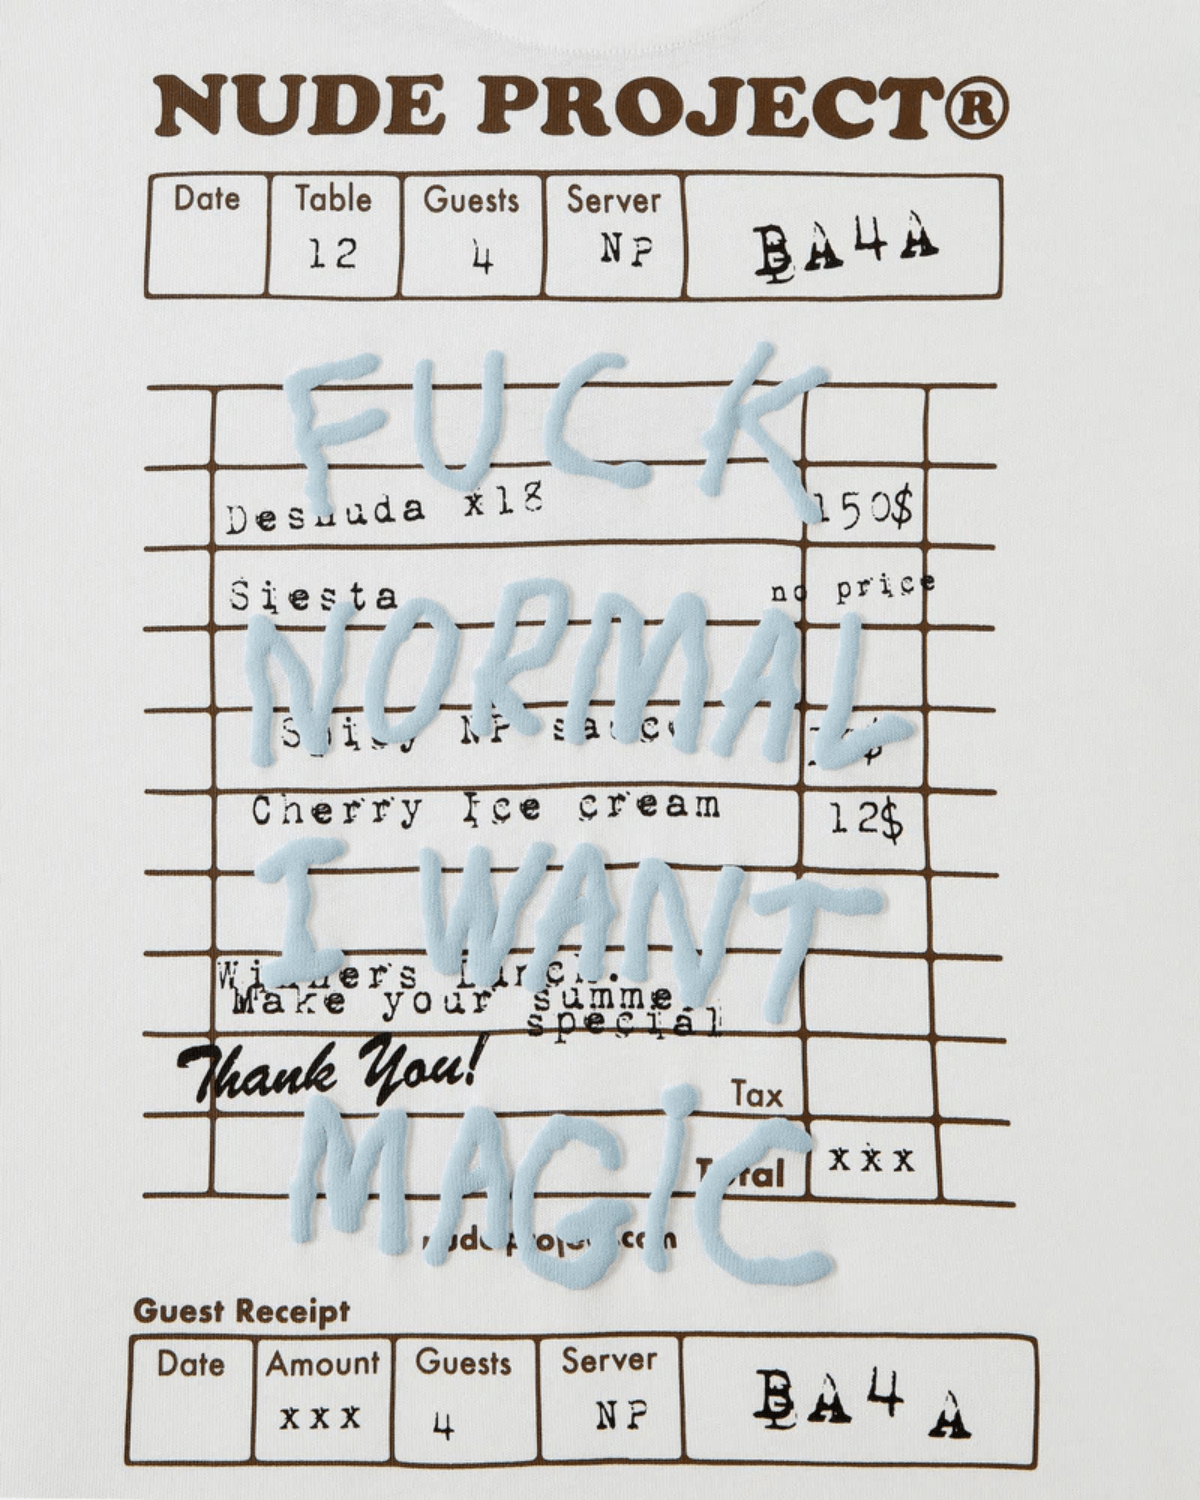 NUDE PROJECT®
Date Table Guests Server
12 4 NP BA4A
FUCK
Desnuda x18 150$
Siesta no price
NORMAL
Spicy NP sauce
Cherry Ice cream 12$
I WANT
Winners Lunch.
Make your summer
special
Thank You!
Tax
MAGiC
Total xxx
nude-project.com
Guest Receipt
Date Amount Guests Server
xxx 4 NP BA4A